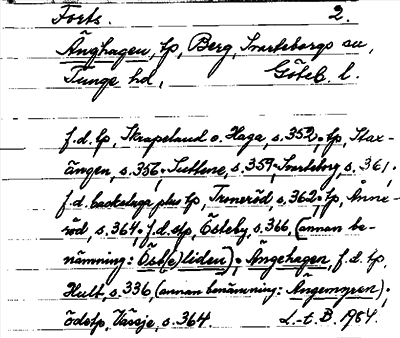 Forts. 2.
Änghagen, tp, Berg, Svarteborgs sn,
Tunge hd, Göteb. l.
f.d. tp, Skrapeland o. Haga, s. 352, tp, Stax-
ängen, s. 356, s. 359, Svarteborg, s. 361,
f.d. backstuga plus tp, Truneröd, s. 362, tp, Änne-
röd, s. 364, f.d. stp, Östeby, s. 366, (annan be-
nämning: Öst(e)liden), Ängehagen, f.d. tp,
Hult, s. 336, (annan benämning: Ängemyren),
ödetp, s. 364. L.-t. B. 1984.